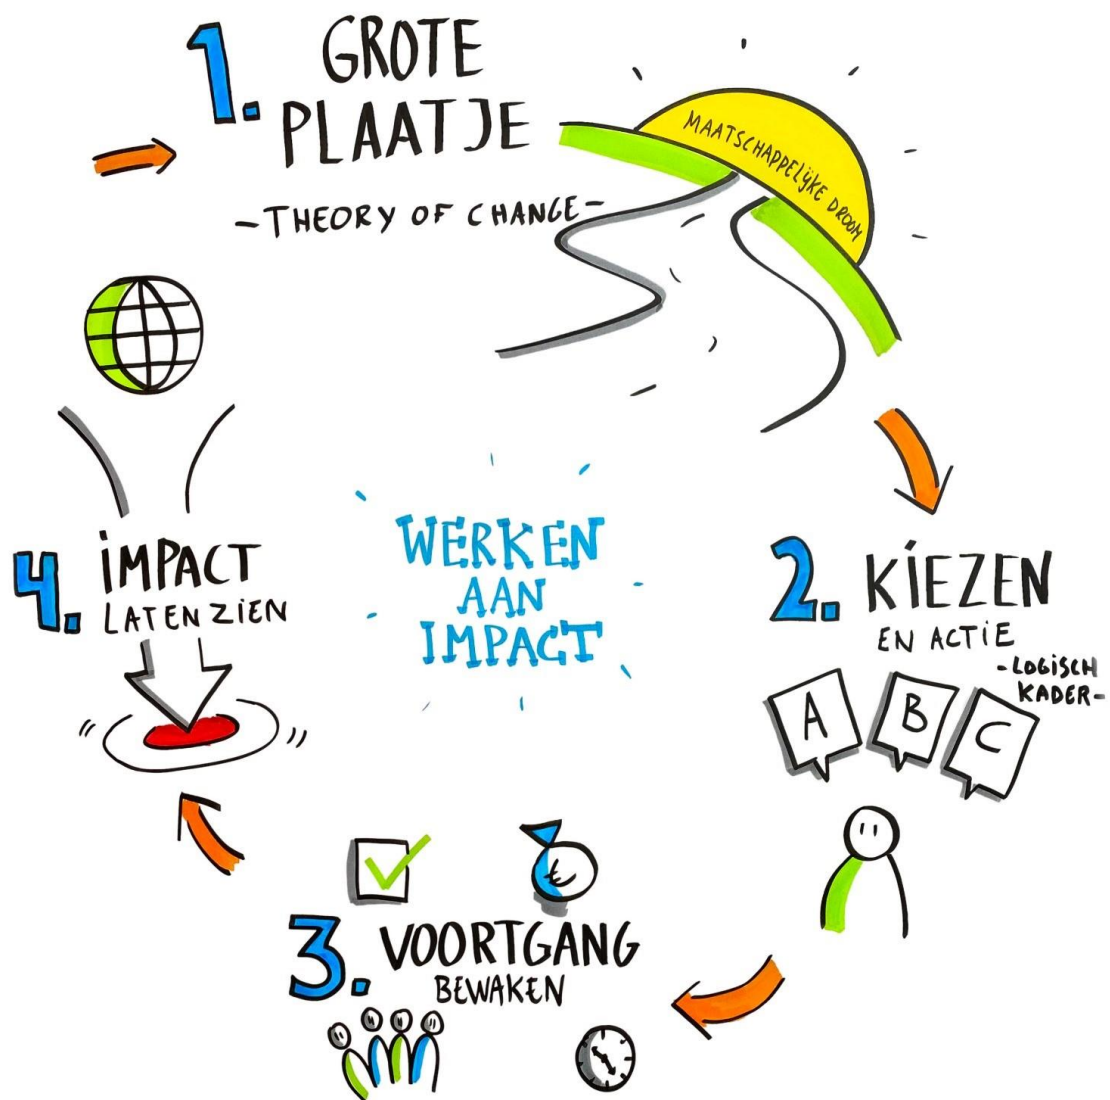 1. GROTE
PLAATJE
-THEORY OF CHANGE-
MAATSCHAPPELIJKE DROOM
WERKEN
AAN
IMPACT
2. KIEZEN
EN ACTIE
-LOGISCH
KADER-
A B C
€
3. VOORTGANG
BEWAKEN
4. IMPACT
LATEN ZIEN